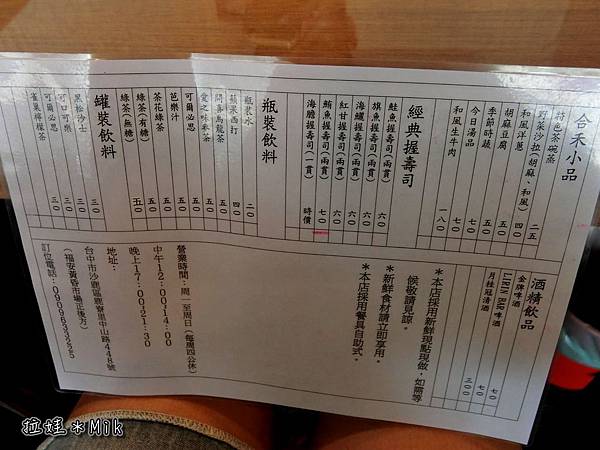 合禾小品
特色茶碗蒸
野菜沙拉(胡麻、和風) 二五
和風洋蔥 四〇
胡麻豆腐 五〇
季節時蔬 五〇
今日湯品 七〇
和風生牛肉 一八〇
經典握壽司
鮭魚握壽司(兩貫) 六〇
旗魚握壽司(兩貫) 六〇
海鱺握壽司(兩貫) 六〇
紅甘握壽司(兩貫) 六〇
鮪魚握壽司(兩貫) 七〇
海膽握壽司(一貫) 時價
瓶裝飲料
瓶裝水 二〇
蘋果西打 四〇
開喜烏龍茶 五〇
愛之味麥茶 五〇
可爾必思 五〇
芭樂汁 五〇
茶花綠茶 五〇
綠茶(有糖) 五〇
綠茶(無糖)
罐裝飲料
黑松沙士 三〇
可口可樂 三〇
可爾必思 三〇
雀巢檸檬茶 三〇
酒精飲品
金牌啤酒 七〇
KIRIN BAR 啤酒 七〇
月桂冠清酒 三〇〇
*本店採用新鮮現點現做，如需等
候敬請見諒。
*新鮮食材請立即享用。
*本店採用餐具自助式。
營業時間：周一至周日(每周四公休)
中午12:00-14:00
晚上17:00-21:30
地址：
台中市沙鹿區鹿寮里中山路448號
(福安黃昏市場正後方)
訂位電話：0909632525
拉娃*Mik